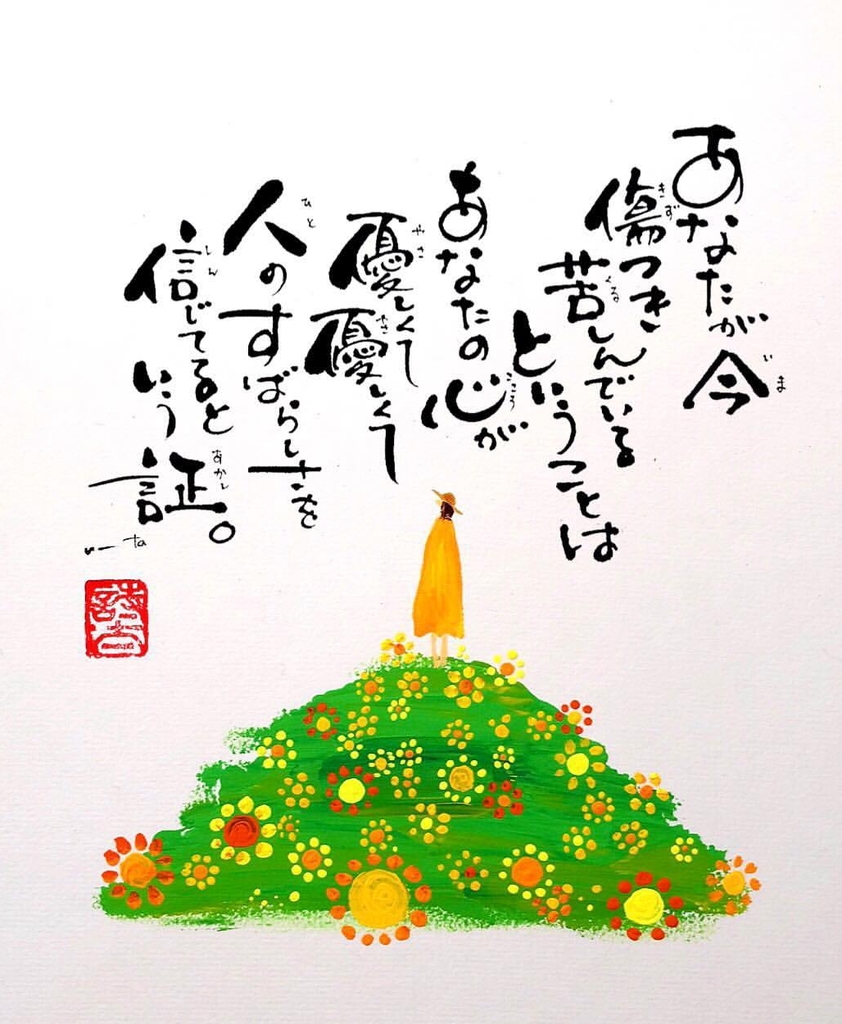 あなたが今
傷つき
苦しんでいる
ということは
あなたの心が
優しくて
優しくて
人のすばらしさを
信じてると
いう
証。